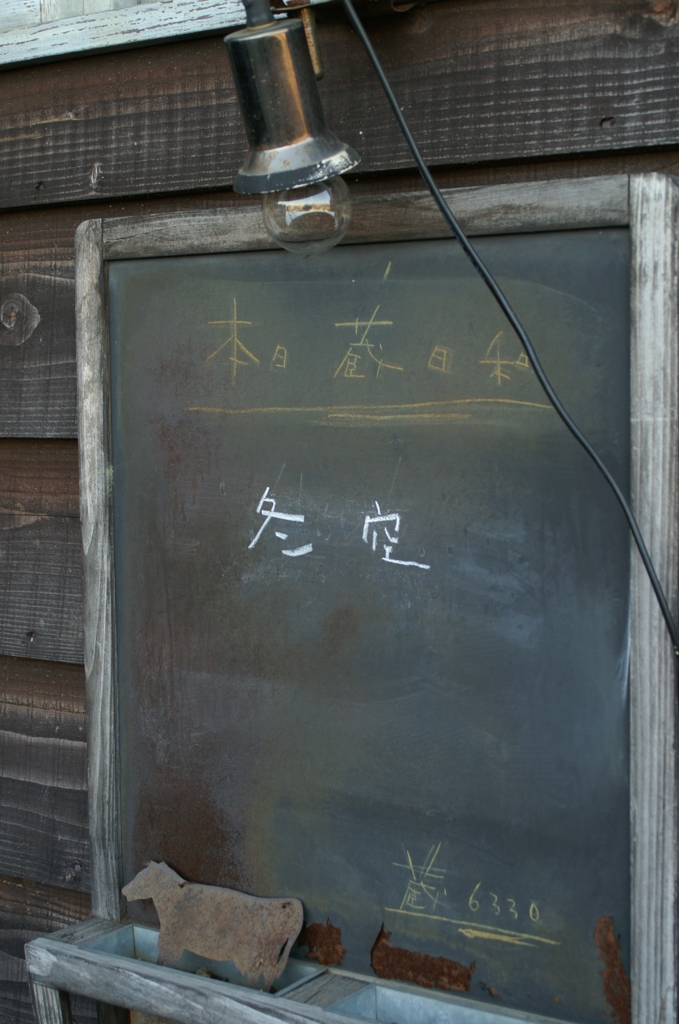 本日蔵日和
冬空
蔵 6330